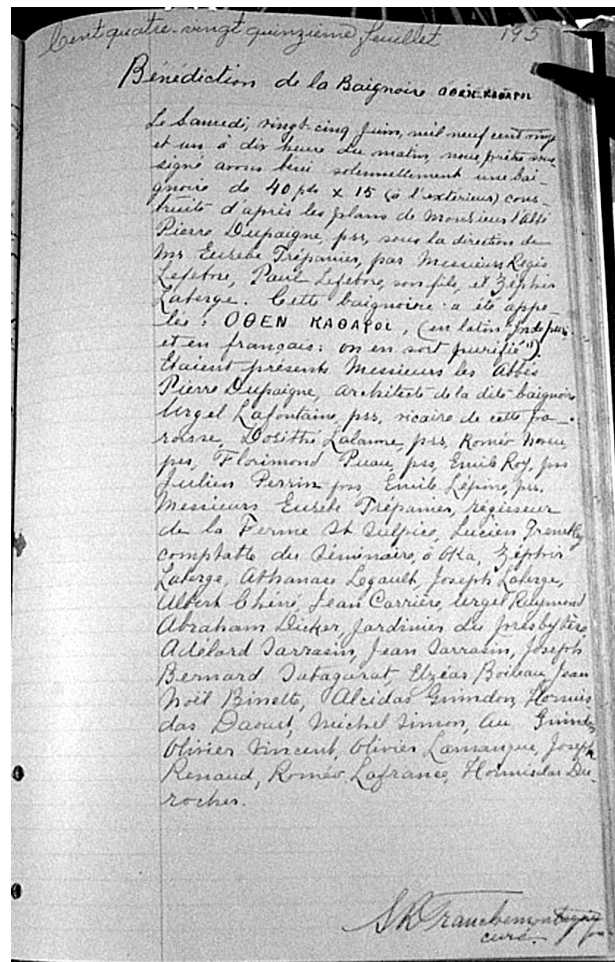 Cent quatre-vingt quinzième feuillet 195
Bénédiction de la Baignoire OΘEN KAΘAPOI
Le Samedi, vingt-cinq Juin, mil neuf cent
et un à dix heure du matin, nous prêtre sous
signé avons béni solennellement une bai-
gnoire de 40 pds x 15 (à l'extérieur) cons-
truite d'après les plans de Monsieur l'abbé
Pierre Dupaigne, pss, sous la direction de
Mr Eusèbe Trépanier, par Messieurs Régis
Lefebvre, Paul Lefebvre, son fils, et Zéphir
Laberge. Cette baignoire a été appe-
lée: OΘEN KAΘAPOI, (en latin
et en français: on en sort purifié").
Etaient présents Messieurs les abbés
Pierre Dupaigne, architecte de la dite baignoire
Urgel Lafontaine, pss, vicaire de cette pa-
roisse, Dosithé Lalanne, pss, Roméo
pss, Florimond Puau, pss, Emile Roy, pss
Julien Perrin pss, Emile Lépine, pss.
Messieurs Eusèbe Trépanier, régisseur
de la Ferme St Sulpice, Lucien
comptable du Séminaire, à Oka, Zéphir
Laberge, Athanase Legault, Joseph Laberge,
Albert Chéné, Jean Carrière, Urgel Raymond
Abraham Dicker, Jardinier du presbytère,
Adélard Sarrasin, Jean Sarrasin, Joseph
Bernard Satagarat, Elzéar Boileau, Jean
Noël Binette, Alcidas Guindon, Hormis
das Daoust, Michel Simon, Guindon
Olivier Vincent, Olivier Lamarque, Joseph
Renaud, Roméo Lafrance, Hormisdas Du-
rocher.
SR Franchemontagne
curé